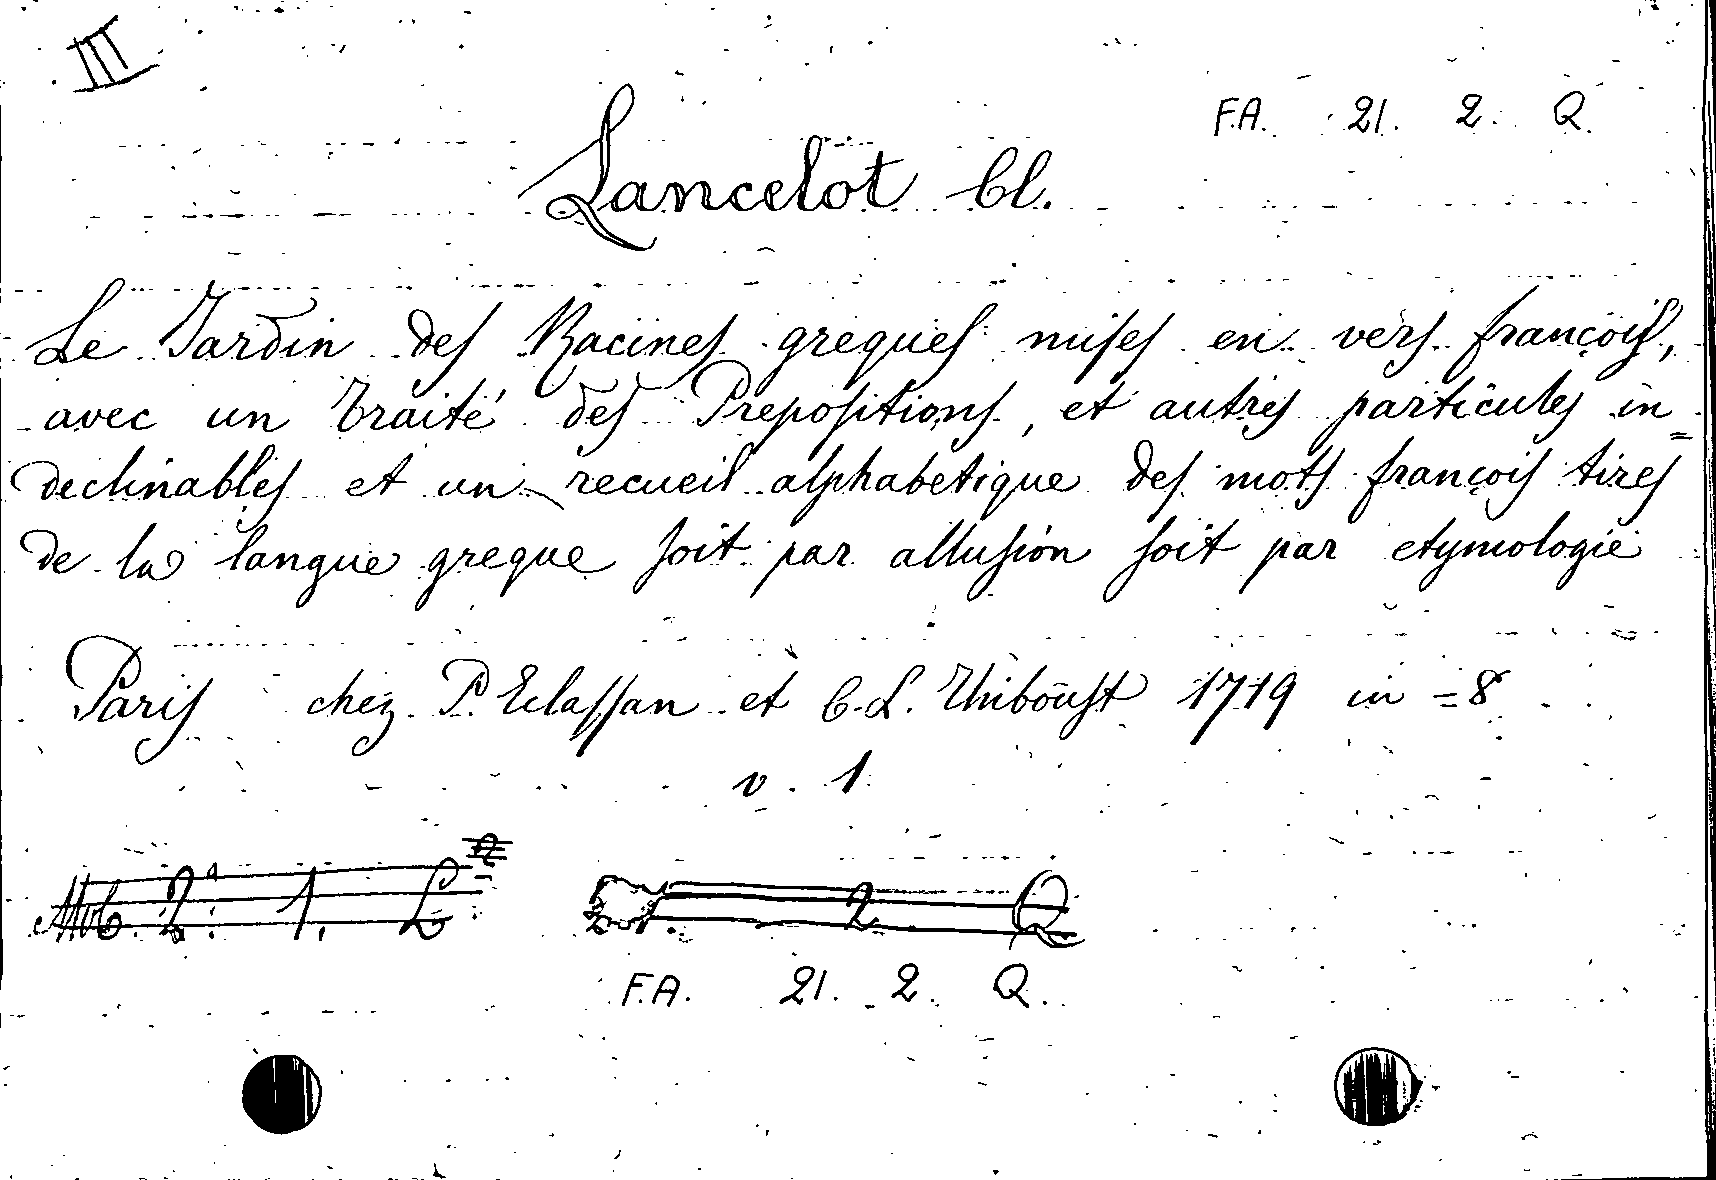 III
F.A. 21. 2. Q.
Lancelot Cl.
Le Jardin des Racines greques mises en vers françois,
avec un traité des Prepositions, et autres particules in=
declinables et un recueil alphabetique des mots françois tires
de la langue greque soit par allusion soit par etymologie
Paris chez P. Eclassan et C. L. Thiboust 1719 in =8
v. 1
2ª 1. L
21. 2 Q
F.A. 21. 2. Q.